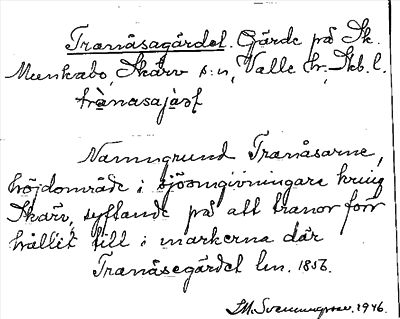 Tranåsagärdet. Gärde på Sk.
Munkabo, Skärv s:n, Valle hr, Skb. l.
trànasajàt
Namngrund Tranåsarne,
höjdområde i sjöomgivningara kring
Skärv, syftande på att tranor förr
hållit till i markerna där
Tranåsegärdet lm. 1856.
1946.